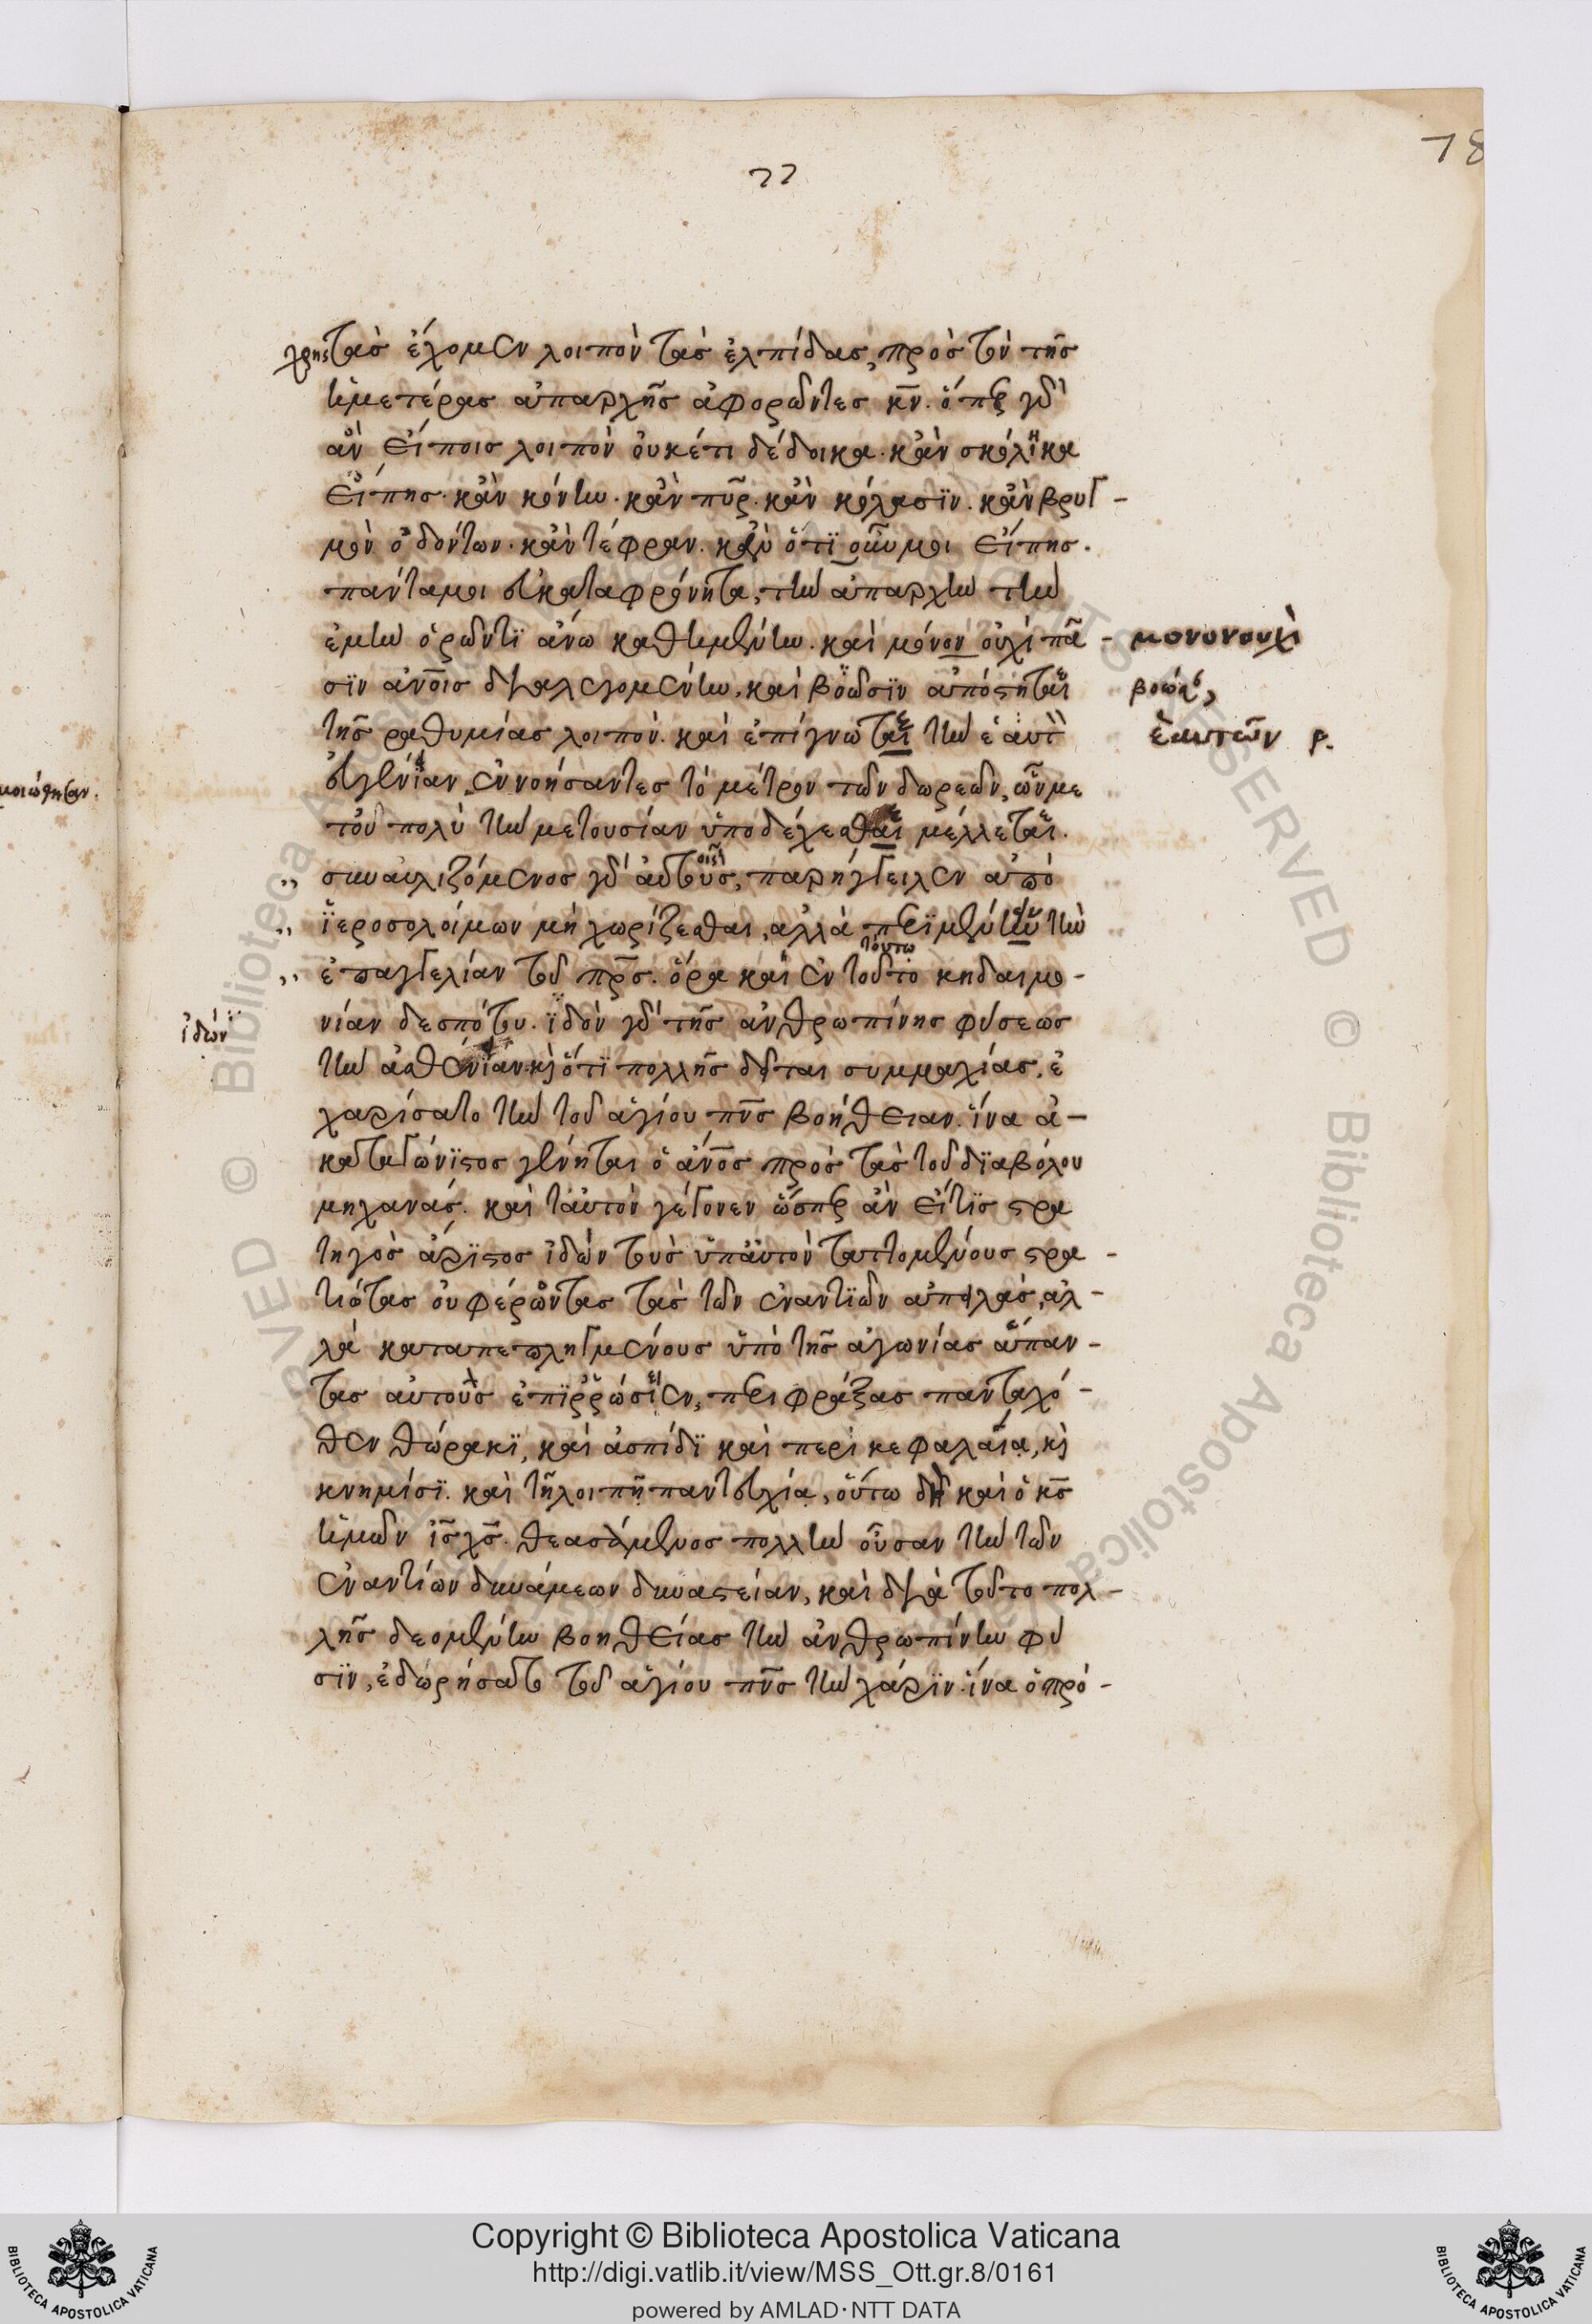 78
77
χρηστὰς ἔχομεν λοιπὸν τὰς ἐλπίδας, πρὸς τὸν τῆς
ἡμετέρας ἀπαρχῆς ἀφορῶντες κν̅. ὅπερ γὰρ
ἂν εἴποις λοιπὸν οὐκέτι δέδοικα. κἂν σκόληκα
εἴπης. κἂν κόνην. κἂν πῦρ. κἂν κόλασϊν. κἂν βρυγ-
μὸν ὀδόντων. κἂν τέφραν. κἂν ὅτϊ οὖν μοι εἴπης.
πάντα μοι εὐκαταφρόνητα, τὴν ἀπαρχὴν τὴν
ἐμὴν ὁρῶντϊ ἄνω καθημένην. καὶ μόνον οὐχὶ πᾶ- μονονουχὶ
σϊν ἀνο̅ις διαλεγομένην, καὶ βοῶσϊν ἀπόστηται βοῶσαν,
τῆς ραθυμίας λοιπὸν. καὶ ἐπίγνωται τὴν ἑαυτ ἑαυτῶν ρ.
εὐγένϊαν, ἐννοήσαντες τὸ μέτρον τῶν δωρεῶν, ὧν με
τ' οὐ πολὺ τὴν μετουσίαν ὑποδέχεσθαι μέλλεται.
συναυλιζόμενος γὰρ αὐτοῖς, παρήγγειλεν ἀπὸ
ϊεροσολοίμων μὴ χωρίζεσθαι, ἀλλὰ περϊμένην τὴν
ἐπαγγελίαν τοῦ πρ̅ς. ὅρα καὶ ἐν τούτω κηδαιμο-
ἰδὼν νίαν δεσπότου. ϊδὸν γὰρ τῆς ἀνθρωπίνης φύσεως
τὴν ἀσθένϊαν, κὶ ὅτϊ πολλῆς δεῖται συμμαχίας, ἐ
χαρίσατο τὴν τοῦ ἁγίου πν̅ς βοήθειαν. ἵνα ἀ-
καταγώνϊστος γένηται ὁ ἄνο̅ς πρὸς τὰς τοῦ δϊαβόλου
μηχανάς. καὶ ταὐτὸν γέγονεν ὥσπερ ἂν εἴ τϊς στρα
τηγὸς ἄρϊστος ἰδὼν τοὺς ὑπ' αὐτὸν ταττομένους στρα-
τιότας οὐ φέροντας τὰς τῶν ἐναντϊῶν ἀπειλάς, ἀλ-
λὰ καταπεπληγμένους ὑπὸ τῆς ἀγωνίας ἅπαν-
τας αὐτοὺς ἐπϊῤῥώσειεν, περιφράξας πανταχό-
θεν θώρακϊ, καὶ ἀσπίδϊ καὶ περὶ κεφαλαία, κὶ
κνημίσϊ. καὶ τῆ λοιπῆ παντευχία, οὕτω δὴ καὶ ὁ κς̅
ἡμῶν ἰς̅ χς̅. θεασάμενος πολλὴν οὖσαν τὴν τῶν
ἐναντίων δυνάμεων δυναστείαν, καὶ διὰ τοῦτο πολ-
λῆς δεομένην βοηθείας τὴν ἀνθρωπίνην φύ
σϊν, ἐδωρήσατο τοῦ ἁγίου πν̅ς τὴν χάρϊν. ἵνα ὁ πρό-
Copyright © Biblioteca Apostolica Vaticana
http://digi.vatlib.it/view/MSS_Ott.gr.8/0161
powered by AMLAD·NTT DATA